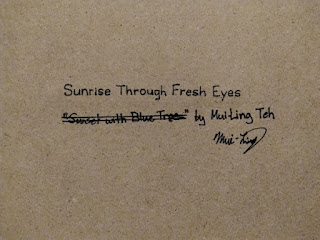 Sunrise Through Fresh Eyes
"Sunset with Blue Tree" by Mui-Ling Teh
Mui-Ling